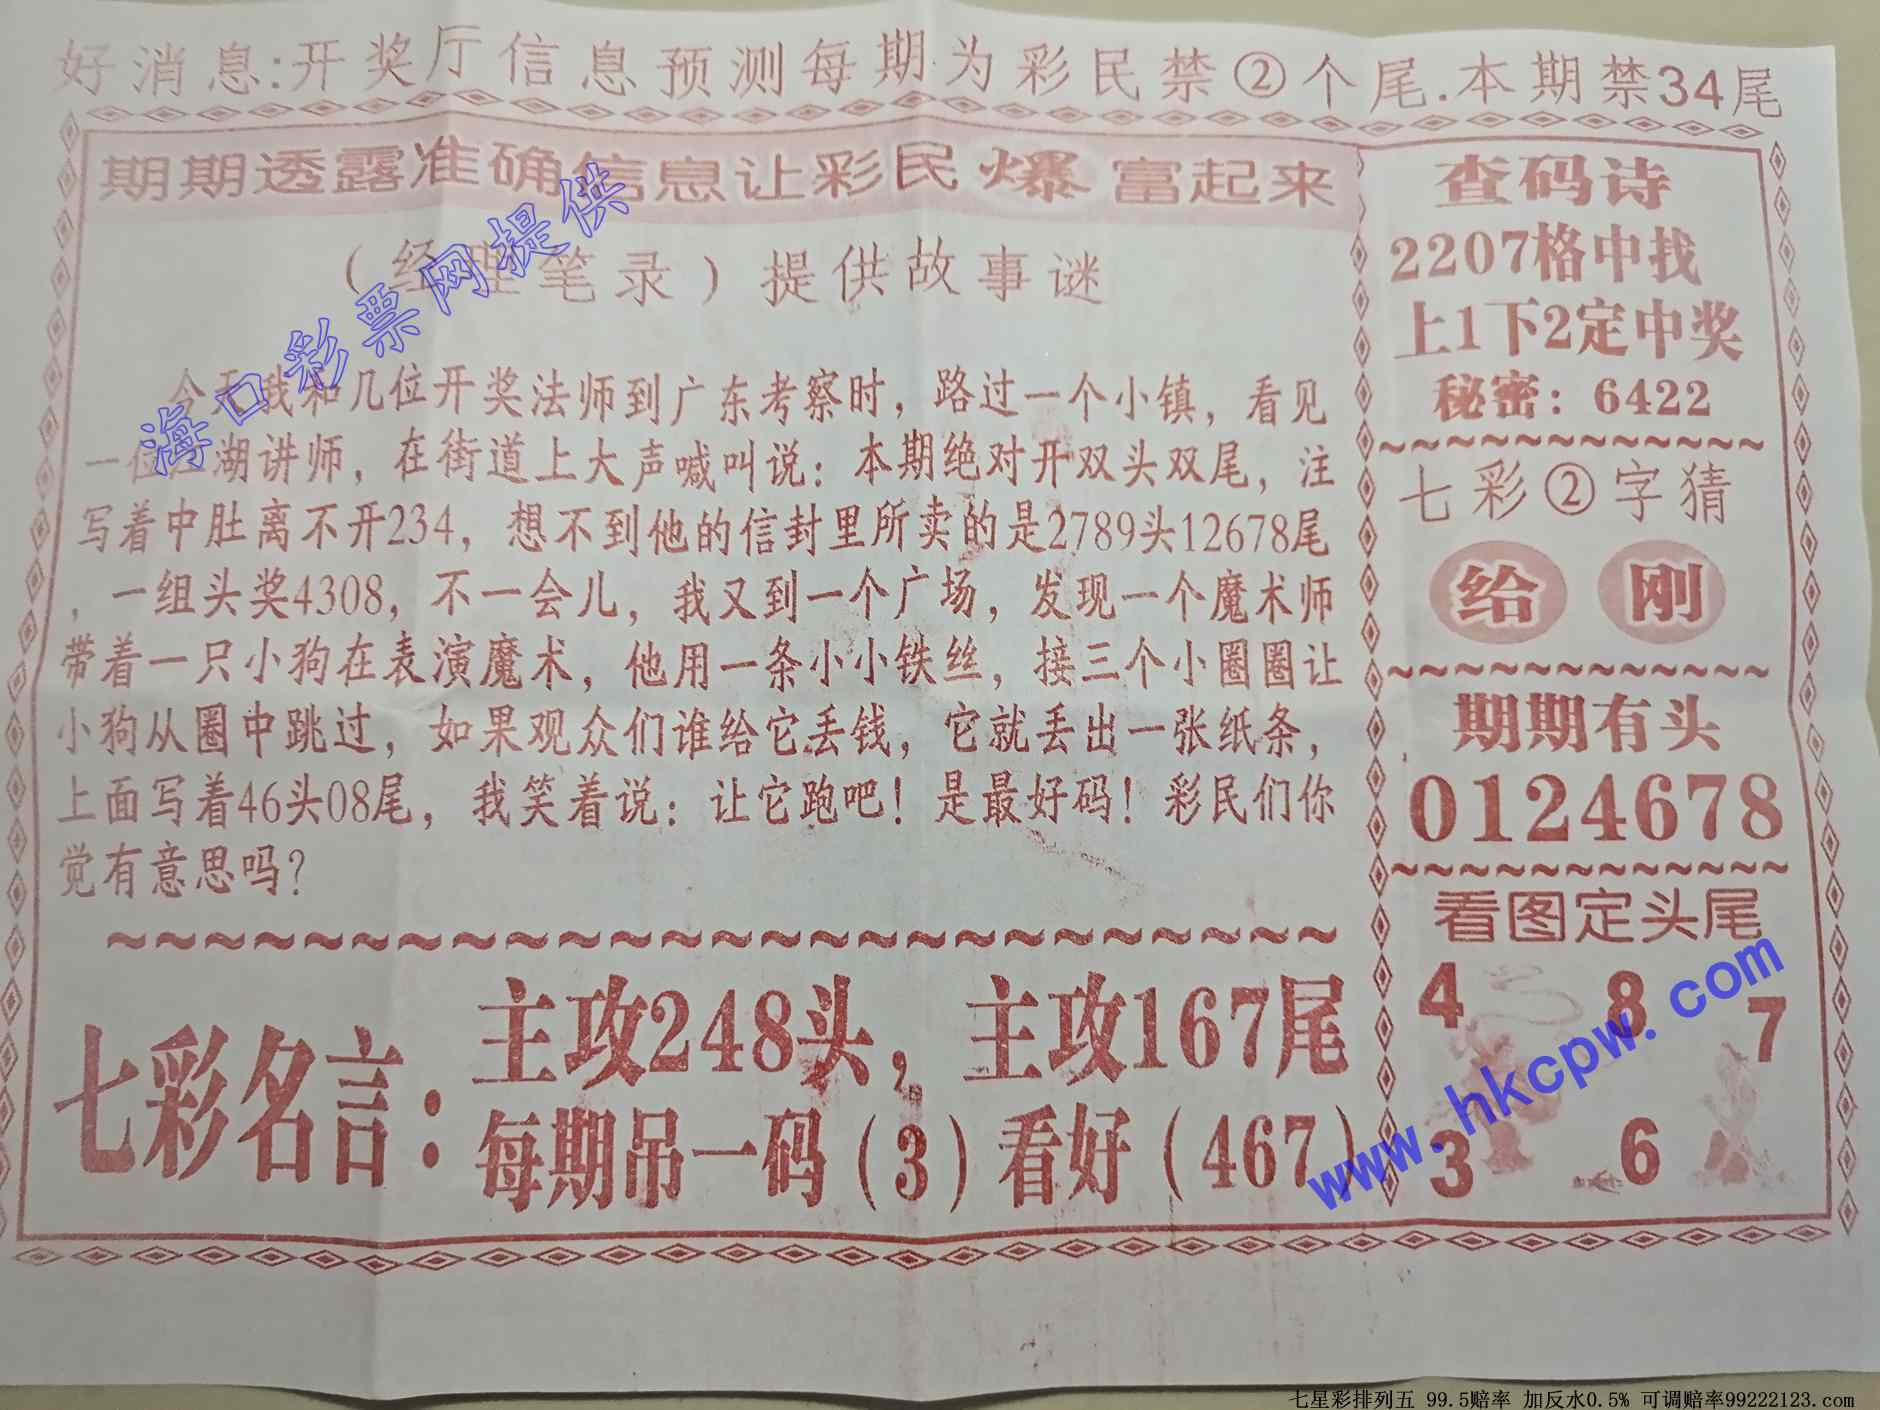 好消息:开奖厅信息预测每期为彩民禁②个尾.本期禁34尾
期期透露准确信息让彩民爆富起来
（经理笔录）提供故事谜
今天我和几位开奖法师到广东考察时，路过一个小镇，看见
一位江湖讲师，在街道上大声喊叫说：本期绝对开双头双尾，注
写着中肚离不开234，想不到他的信封里所卖的是2789头12678尾
，一组头奖4308，不一会儿，我又到一个广场，发现一个魔术师
带着一只小狗在表演魔术，他用一条小小铁丝，接三个小圈圈让
小狗从圈中跳过，如果观众们谁给它丢钱，它就丢出一张纸条，
上面写着46头08尾，我笑着说：让它跑吧！是最好码！彩民们你
觉有意思吗？
七彩名言：
主攻248头，主攻167尾
每期吊一码（3）看好（467）
查码诗
2207格中找
上1下2定中奖
秘密：6422
七彩②字猜
给 刚
期期有头
0124678
看图定头尾
4 8 7
3 6
海口彩票网提供
www.hkcpw.com
七星彩排列五 99.5赔率 加反水0.5% 可调赔率99222123.com